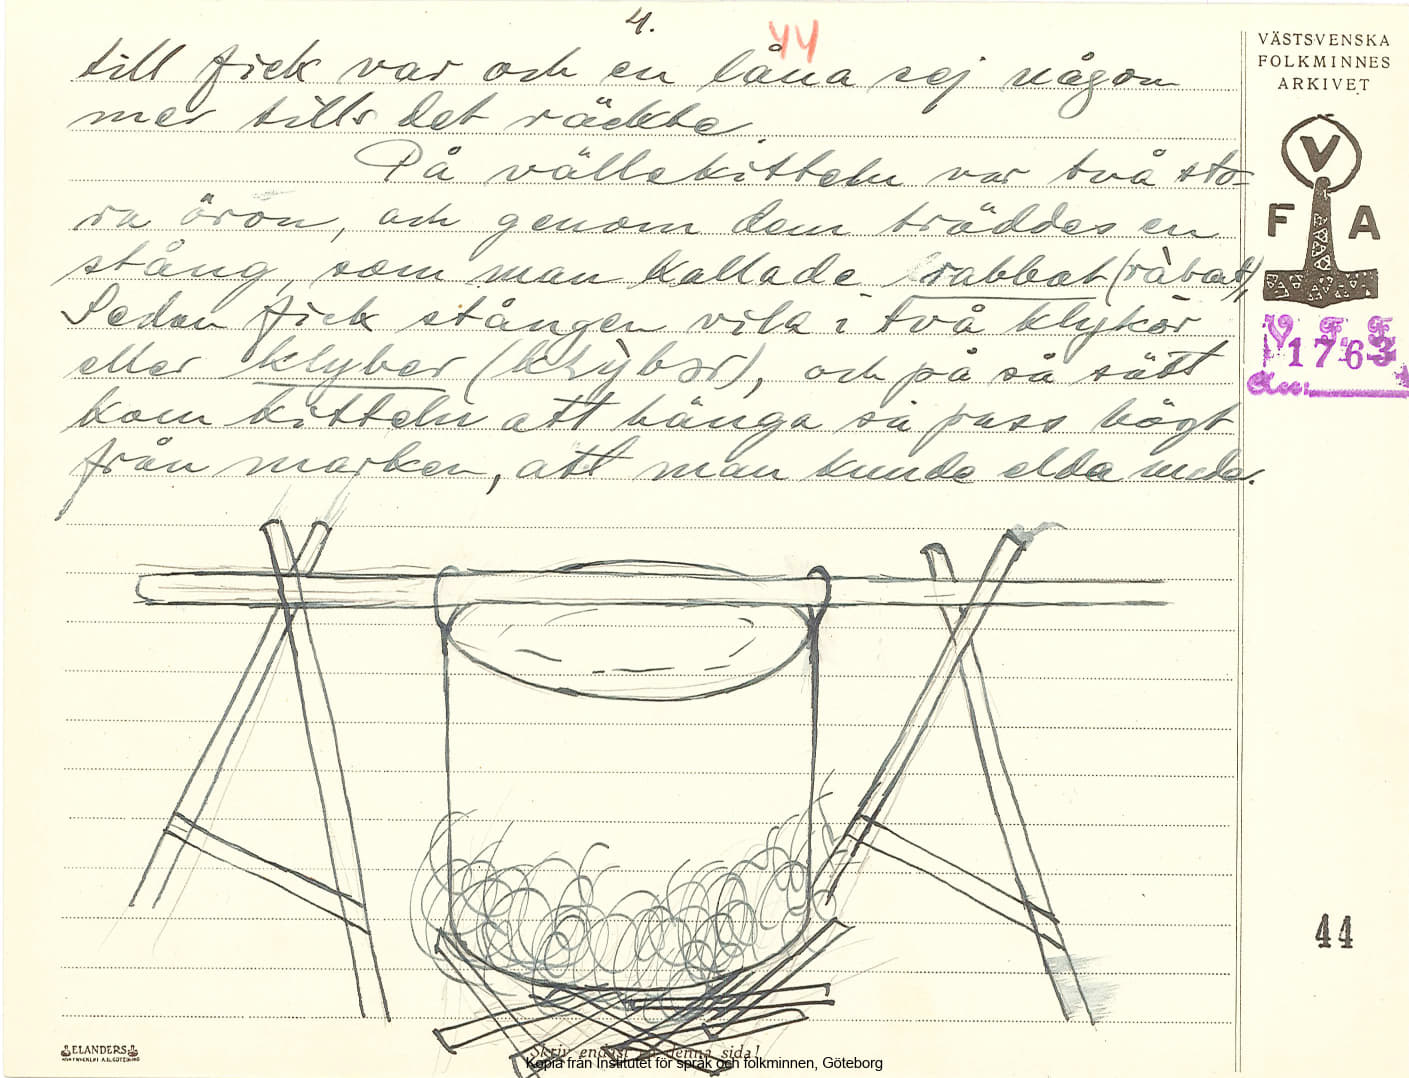 4.
44
till fick var och en låna sej någon
mer tills det räckte.
På vällekitteln var två sto-
ra öron, och genom dem träddes en
stång, som man kallade rabbat (ràbat),
Sedan fick stången vila i två klykor
eller klyber (klỳbər), och på så sätt
kom kitteln att hänga så pass högt
från marken, att man kunde elda under.
VÄSTSVENSKA
FOLKMINNES
ARKIVET
V
F A
V. F. F.
1763
44
ELANDERS
Skriv endast på denna sida!
Kopia från Institutet för språk och folkminnen, Göteborg